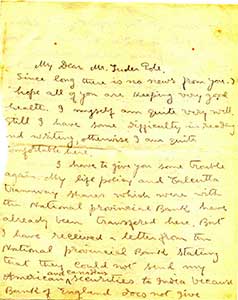 My Dear Mr. Tudor Pole.
Since long there is no news from you. I
hope all of you are keeping very good
health. I myself am quite very well.
Still I have some difficulty in reading
and writing, otherwise I am quite
comfortable here.
I have to give you some trouble
again. My life policy and Calcutta
Tramway shares which were with
the National provincial Bank have
already been transfered here. But
I have received a letter from the
National provincial Bank stating
that they could not send my
American and Canadian securities to India because
Bank of England does not give